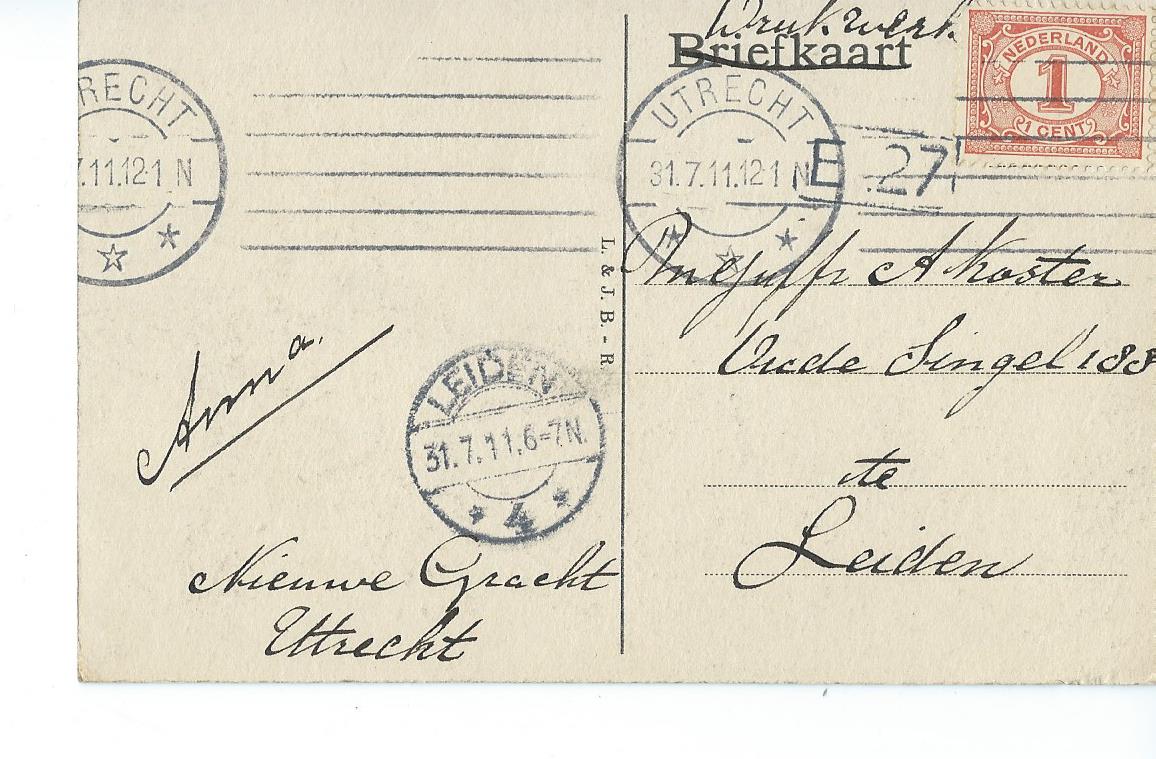 Drukwerk
Briefkaart
NEDERLAND
1
1 CENT
UTRECHT
31.7.11.12-1 N
E 27
TRECHT
7.11.12-1 N
L. & J. B. - R
A Koster
Oude Singel 188
te
Leiden
Anna.
LEIDEN
31.7.11.6-7N.
4
Nieuwe Gracht
Uttrecht